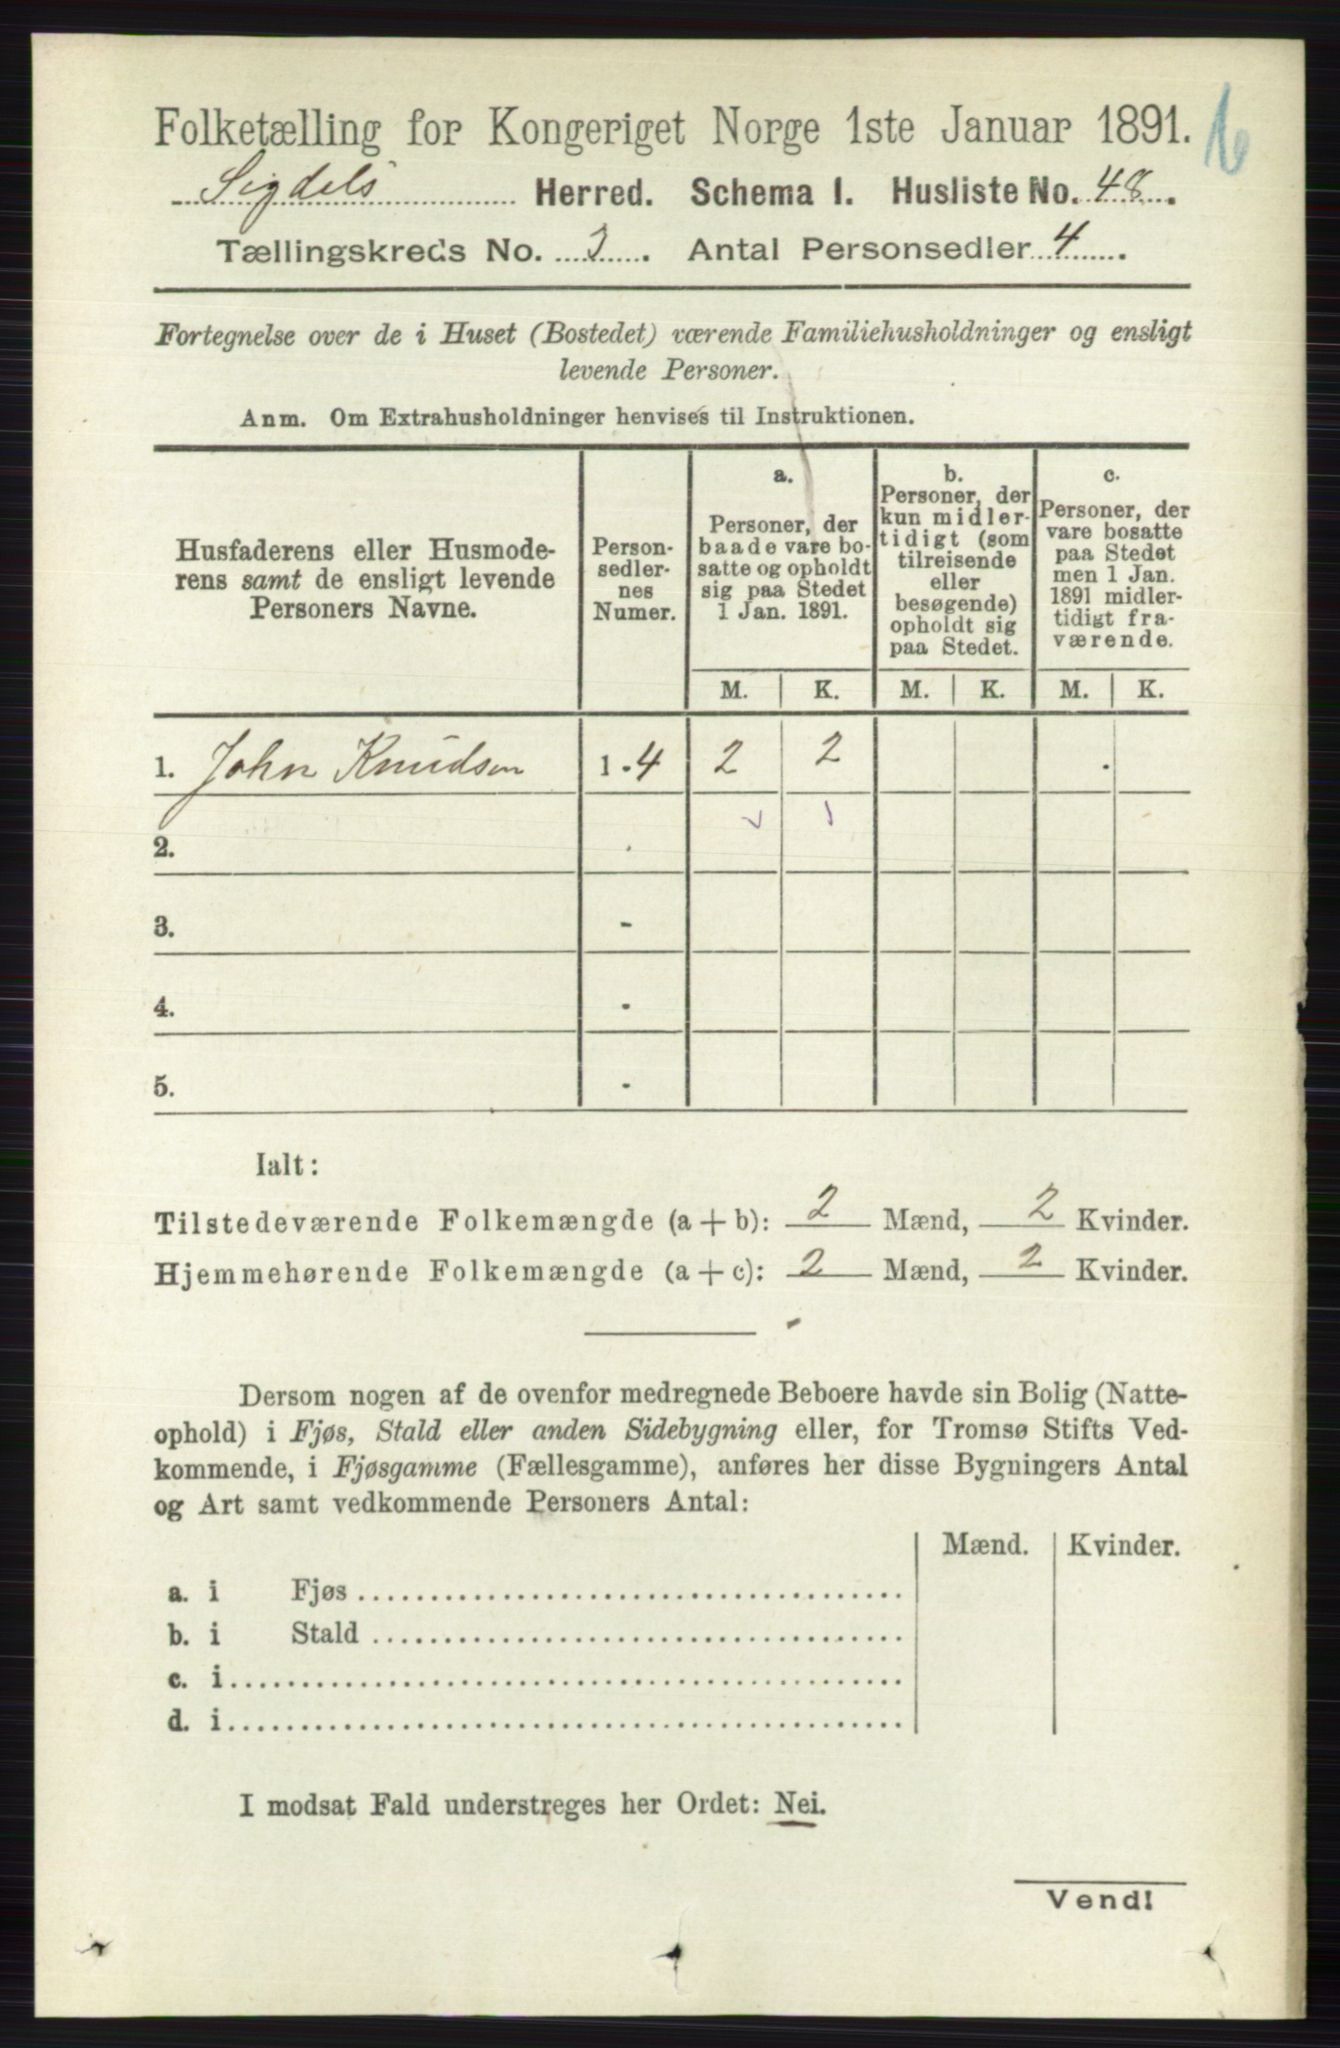 Folketælling for Kongeriget Norge 1ste Januar 1891.
6
Sigdals Herred. Schema I. Husliste No. 48.
Tællingskreds No. 3. Antal Personsedler 4.
Fortegnelse over de i Huset (Bostedet) værende Familiehusholdninger og ensligt
levende Personer.
Anm. Om Extrahusholdninger henvises til Instruktionen.
Husfaderens eller Husmode-
rens samt de ensligt levende
Personers Navne.
Person-
sedler-
nes
Numer.
a.
Personer, der
baade vare bo-
satte og opholdt
sig paa Stedet
1 Jan. 1891.
b.
Personer, der
kun midler-
tidigt (som
tilreisende
eller
besøgende)
opholdt sig
paa Stedet.
c.
Personer, der
vare bosatte
paa Stedet
men 1 Jan.
1891 midler-
tidigt fra-
værende.
M. K. M. K. M. K.
1. John Knudsen 1-4 2 2
2. -
3. -
4. -
5. -
Ialt:
Tilstedeværende Folkemængde (a+b): 2 Mænd, 2 Kvinder.
Hjemmehørende Folkemængde (a+c): 2 Mænd, 2 Kvinder.
Dersom nogen af de ovenfor medregnede Beboere havde sin Bolig (Natte-
ophold) i Fjøs, Stald eller anden Sidebygning eller, for Tromsø Stifts Ved-
kommende, i Fjøsgamme (Fællesgamme), anføres her disse Bygningers Antal
og Art samt vedkommende Personers Antal:
Mænd. Kvinder.
a. i Fjøs
b. i Stald
c. i
d. i
I modsat Fald understreges her Ordet: Nei.
Vend!